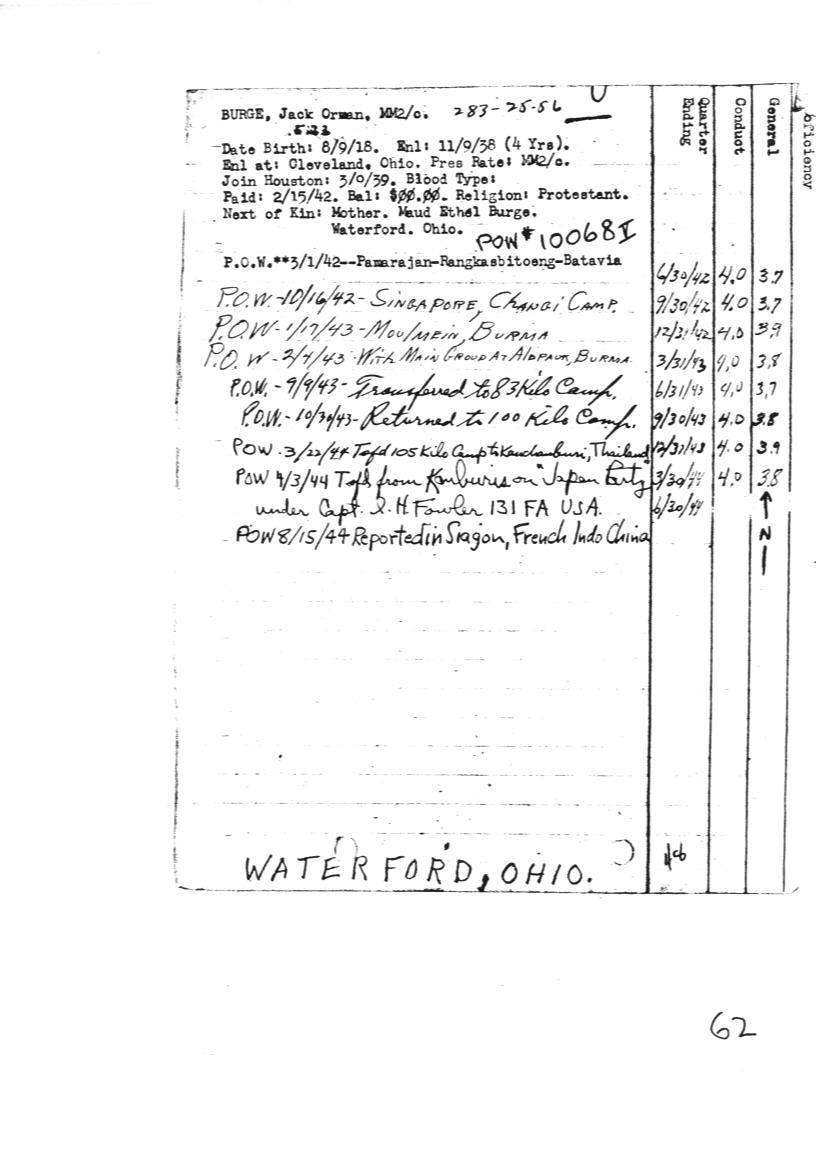 BURGE, Jack Orman, MM2/c. 283-25-56 U
Date Birth: 8/9/18. Enl: 11/9/38 (4 Yrs).
Enl at: Cleveland, Ohio. Pres Rate: MM2/c.
Join Houston: 3/0/39. Blood Type:
Paid: 2/15/42. Bal: $00.00. Religion: Protestant.
Next of Kin: Mother. Maud Ethel Burge.
Waterford. Ohio.
POW# 10068I
Quarter Ending Conduct General Efficiency
P.O.W.**3/1/42--Pamarajan-Rangkasbitoeng-Batavia 6/30/42 4.0 3.7
P.O.W.-10/16/42-SINGAPORE, CHANGI CAMP. 9/30/42 4.0 3.7
P.O.W-1/17/43-MOULMEIN, BURMA 12/31/42 4.0 3.9
P.O.W-2/7/43-WITH MAIN GROUP AT ALOPAUK, BURMA 3/31/43 4.0 3.8
P.O.W.-9/9/43-Transferred to 83 Kilo Camp. 6/31/43 4.0 3.7
P.O.W.-10/30/43-Returned to 100 Kilo Camp. 9/30/43 4.0 3.8
POW-3/22/44 Tsfd 105 Kilo Camp to Kanchanburi, Thailand 12/31/43 4.0 3.9
POW 4/3/44 Tsfd from Kanburi on "Japan Party" 3/30/44 4.0 3.8
under Capt. I. H. Fowler 131 FA USA. 6/30/44 ↑
POW 8/15/44 Reported in Siagon, French Indo China N
WATERFORD, OHIO.
62